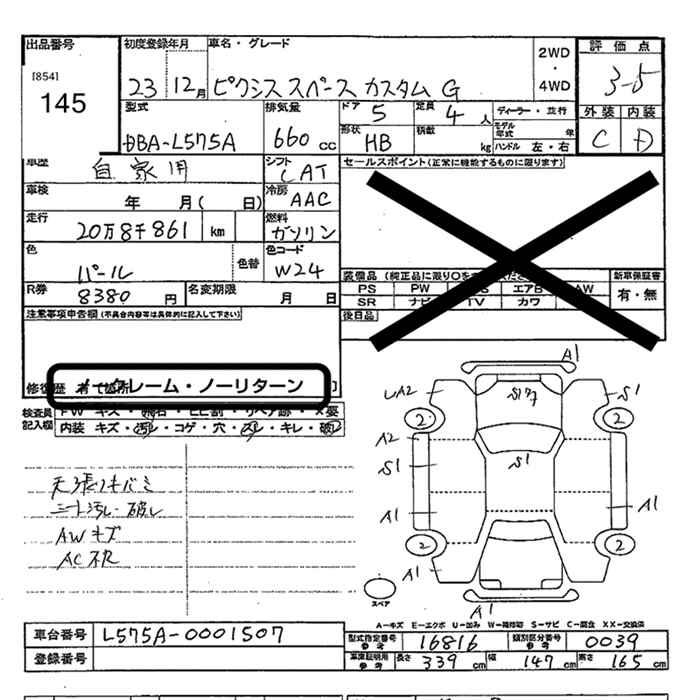 出品番号
[854]
145
初度登録年月 車名・グレード
23 12月 ピクシス スペース カスタム G
2WD
・
4WD
評価点
3-5
外装 内装
C D
型式 排気量 ドア 5 定員 4 人 ディーラー・並行
DBA-L575A 660 cc 形状 HB 積載 kg モデル年式 年
ハンドル 左・右
車歴 自家用 シフト CAT
セールスポイント(正常に機能するものに限ります)
車検 年 月( 日) 冷房 AAC
走行 20万8千861 km 燃料 ガソリン
色 パール 色替 色コード W24
装備品(純正品に限り○を
新車保証書
有・無
PS PW エアB AW
SR ナビ TV カワ
後日品
R券 8380 円 名変期限 月 日
注意事項申告欄(不具合内容等は具体的に記入して下さい)
修復歴 ノークレーム・ノーリターン
検査員記入欄
FW キズ・飛石・ヒビ割・リペア跡・X要
内装 キズ・汚レ・コゲ・穴・スレ・キレ・破レ
天張リキバミ
シート汚レ・破レ
AWキズ
AC不良
A1
UA2 S1
2 2
A2 S1
S1
A1 A1
2 2
A1
A1
スペア
A-キズ E-エクボ U-凹み W-補修跡 S-サビ C-腐食 XX-交換済
車台番号 L575A-0001507
登録番号
型式指定番号 参考 16816 類別区分番号 参考 0039
車庫証明用 参考 長さ 339 cm 幅 147 cm 高さ 165 cm